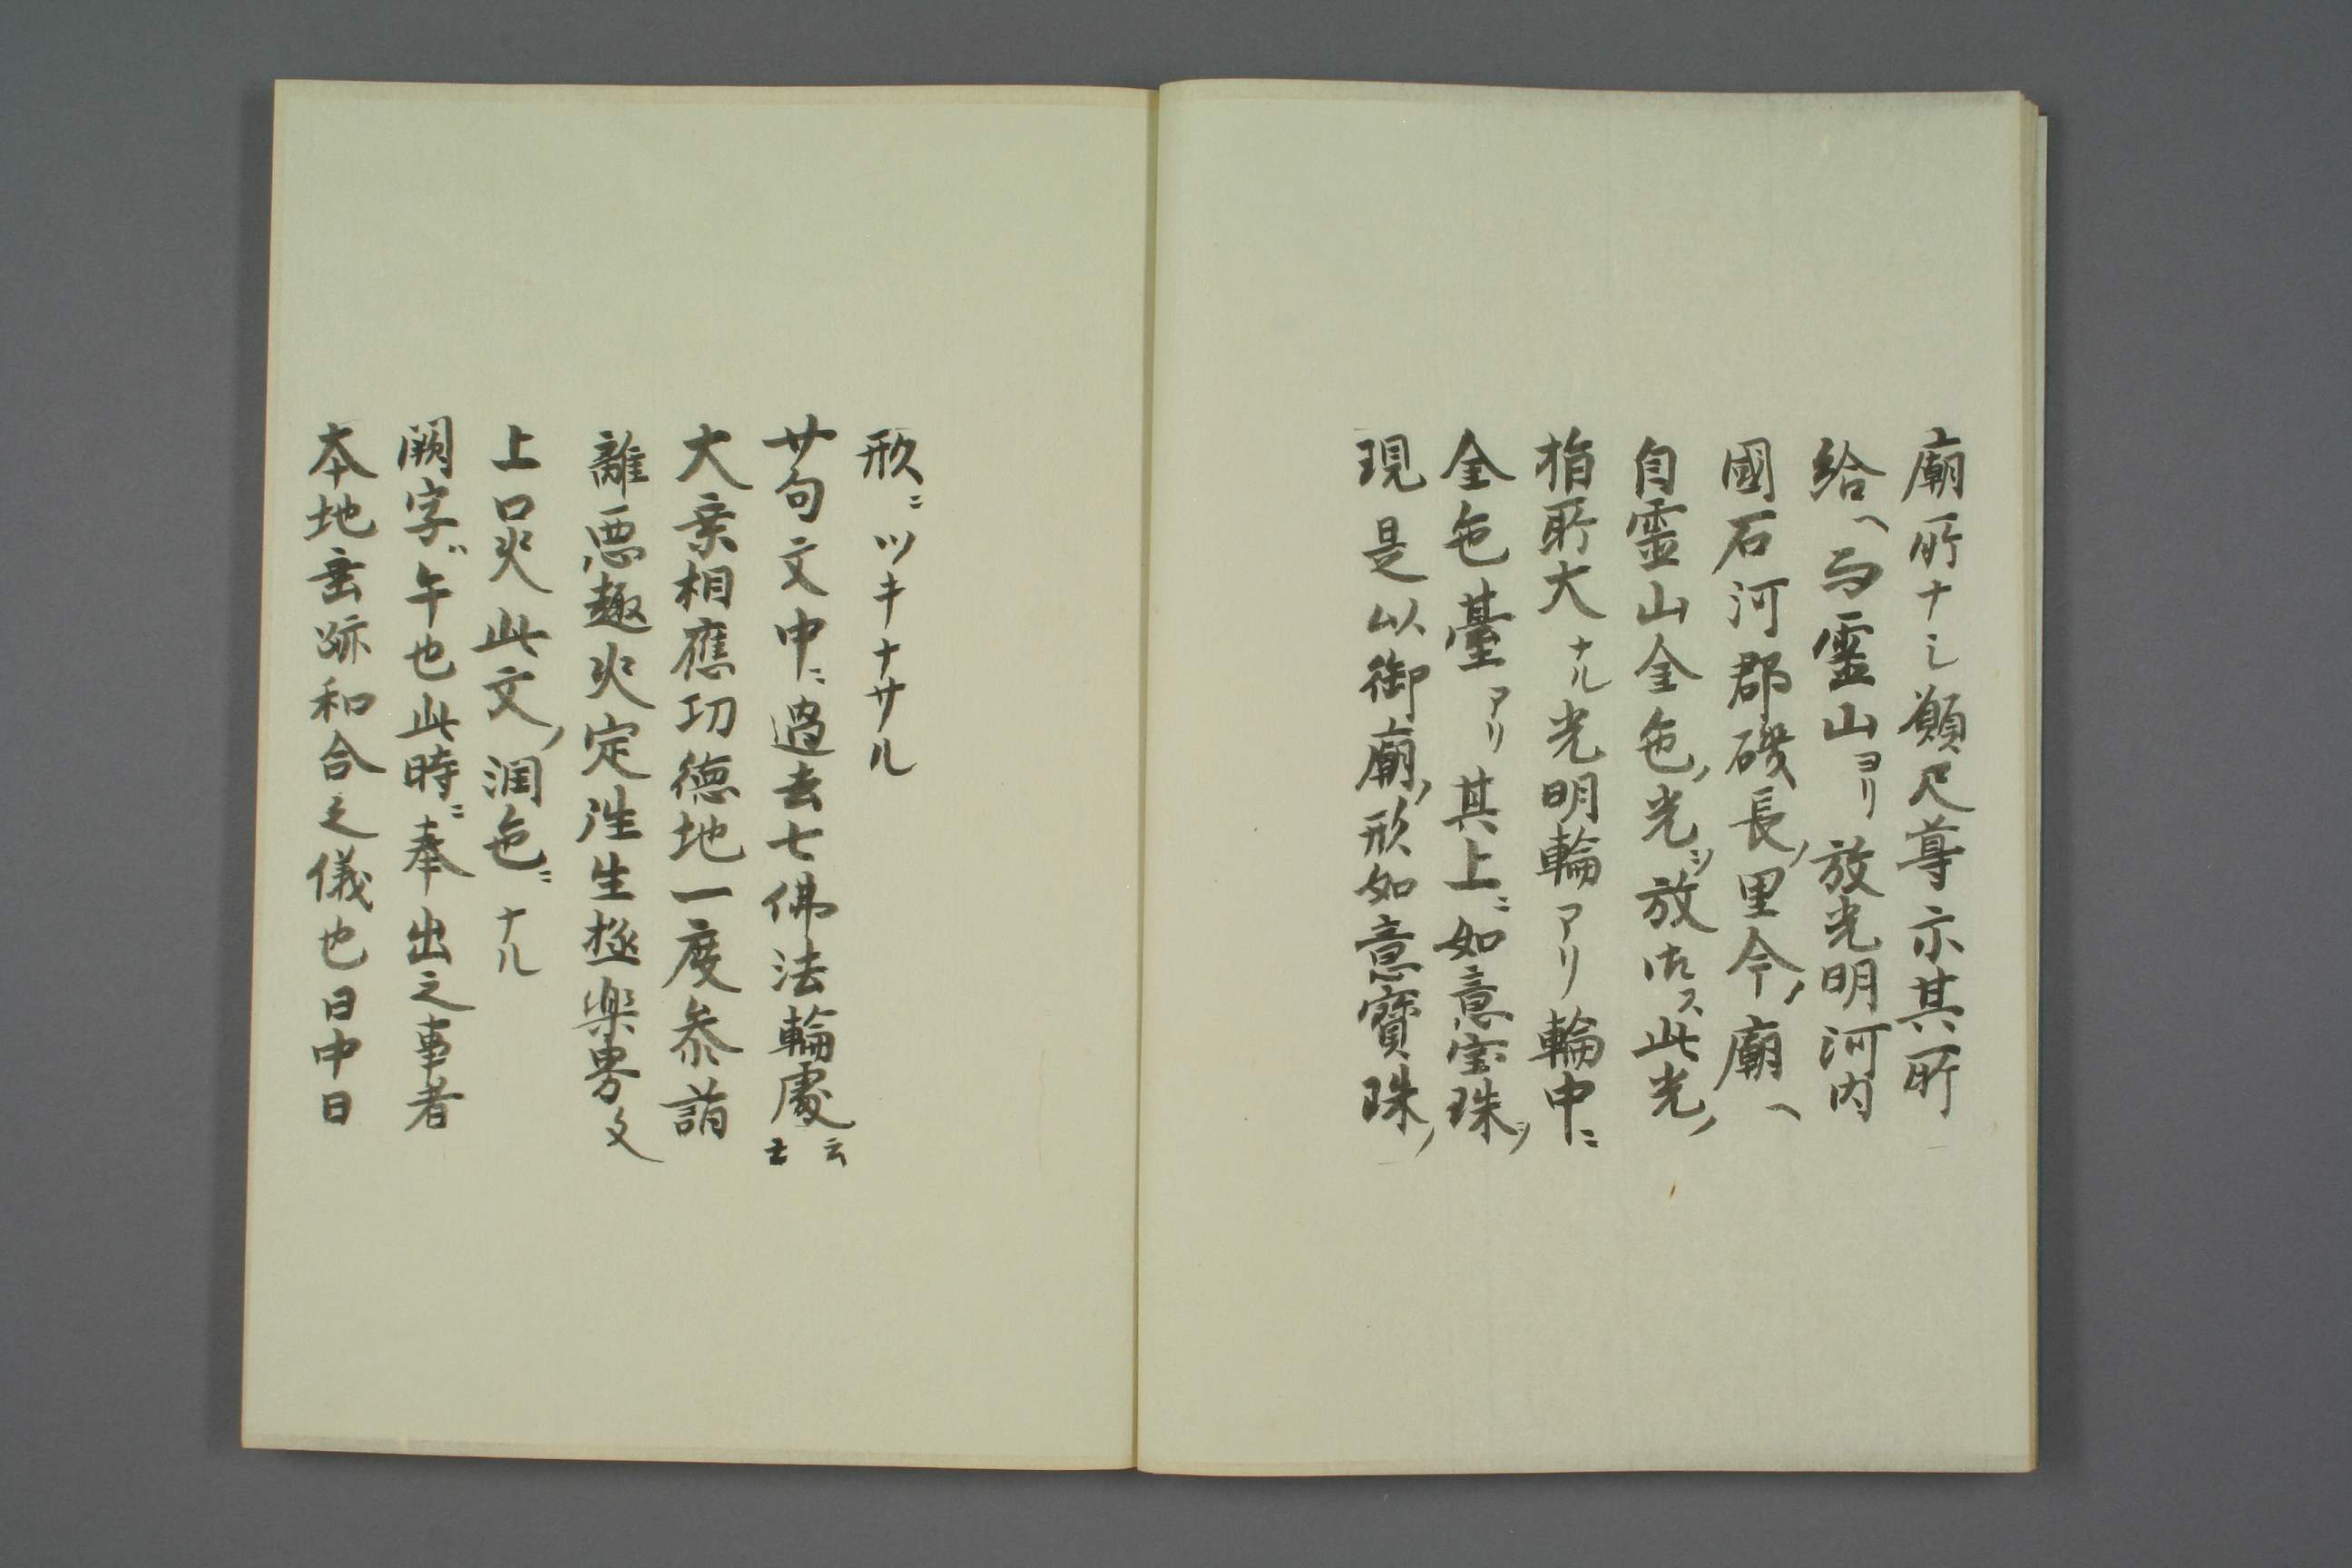 廟所ナシ願尺尊示其所
給ヘ与霊山ヨリ放光明河内
國石河郡磯長ノ里今ノ廟ヘ
自霊山金色ノ光ヲ放玉ス此光ノ
指所大ナル光明輪アリ輪中ニ
金色䑓アリ其上ニ如意宝珠ヲ
現是以御廟ノ形如意寳珠ノ
形ニツキナサル
廿句文中ニ過去七佛法輪處云云
大乗相應功徳地一度参詣
離悪趣火定往生極楽界文
上口火此文ノ潤色ニナル
闕字ガ午也此時ニ奉出之事者
本地垂跡和合之儀也日中日